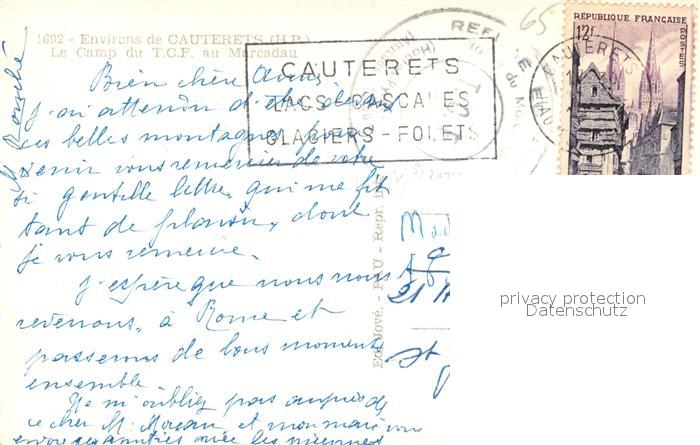 1602 - Environs de CAUTERETS (H.P.)
Le Camp du T.C.F. au Marcadau
65
REPUBLIQUE FRANÇAISE
12f
POSTES
CAUTERETS
CAUTERETS
LACS - CASCADES
GLACIERS - FORETS
REFUGE
du M
Bien chère
J'ai attendu d'être devant
ces belles montagnes pour
venir vous remercier de votre
si gentille lettre qui me fit
tant de plaisir, dont
je vous remercie.
J'espère que nous nous
reverrons à Rome et
passerons de bons moments
ensemble.
Ne m'oubliez pas auprès de
ce cher M. Moreau et mon mari vous
envoie ses amitiés avec les miennes
Edit. Jové. - PAU - Repr. in
Mad
21
St
privacy protection
Datenschutz